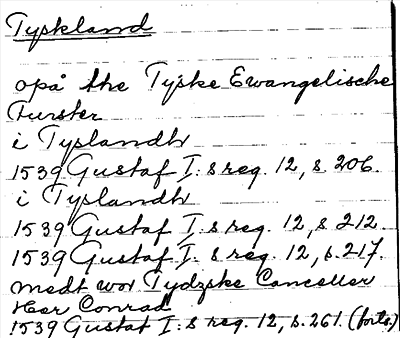 Tyskland
opå the Tyske Ewangelische
Furster
i Tyslandh
1539 Gustaf I:s reg. 12, s. 206.
i Tyslandh
1539 Gustaf I:s reg. 12, s. 212.
1539 Gustaf I:s reg. 12, s. 217.
medt wor Tydzske Canceller
Her Conrad
1539 Gustaf I:s reg. 12, s. 261. (forts.)